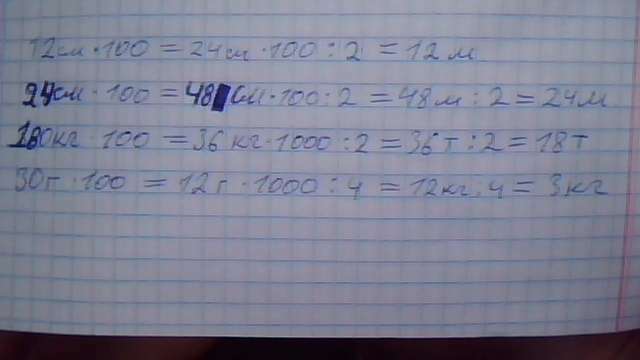 12см · 100 = 24см · 100 : 2 = 12м
24см · 100 = 48 см · 100 : 2 = 48м : 2 = 24м
180кг · 100 = 36кг · 1000 : 2 = 36т : 2 = 18т
30г · 100 = 12г · 1000 : 4 = 12кг : 4 = 3кг